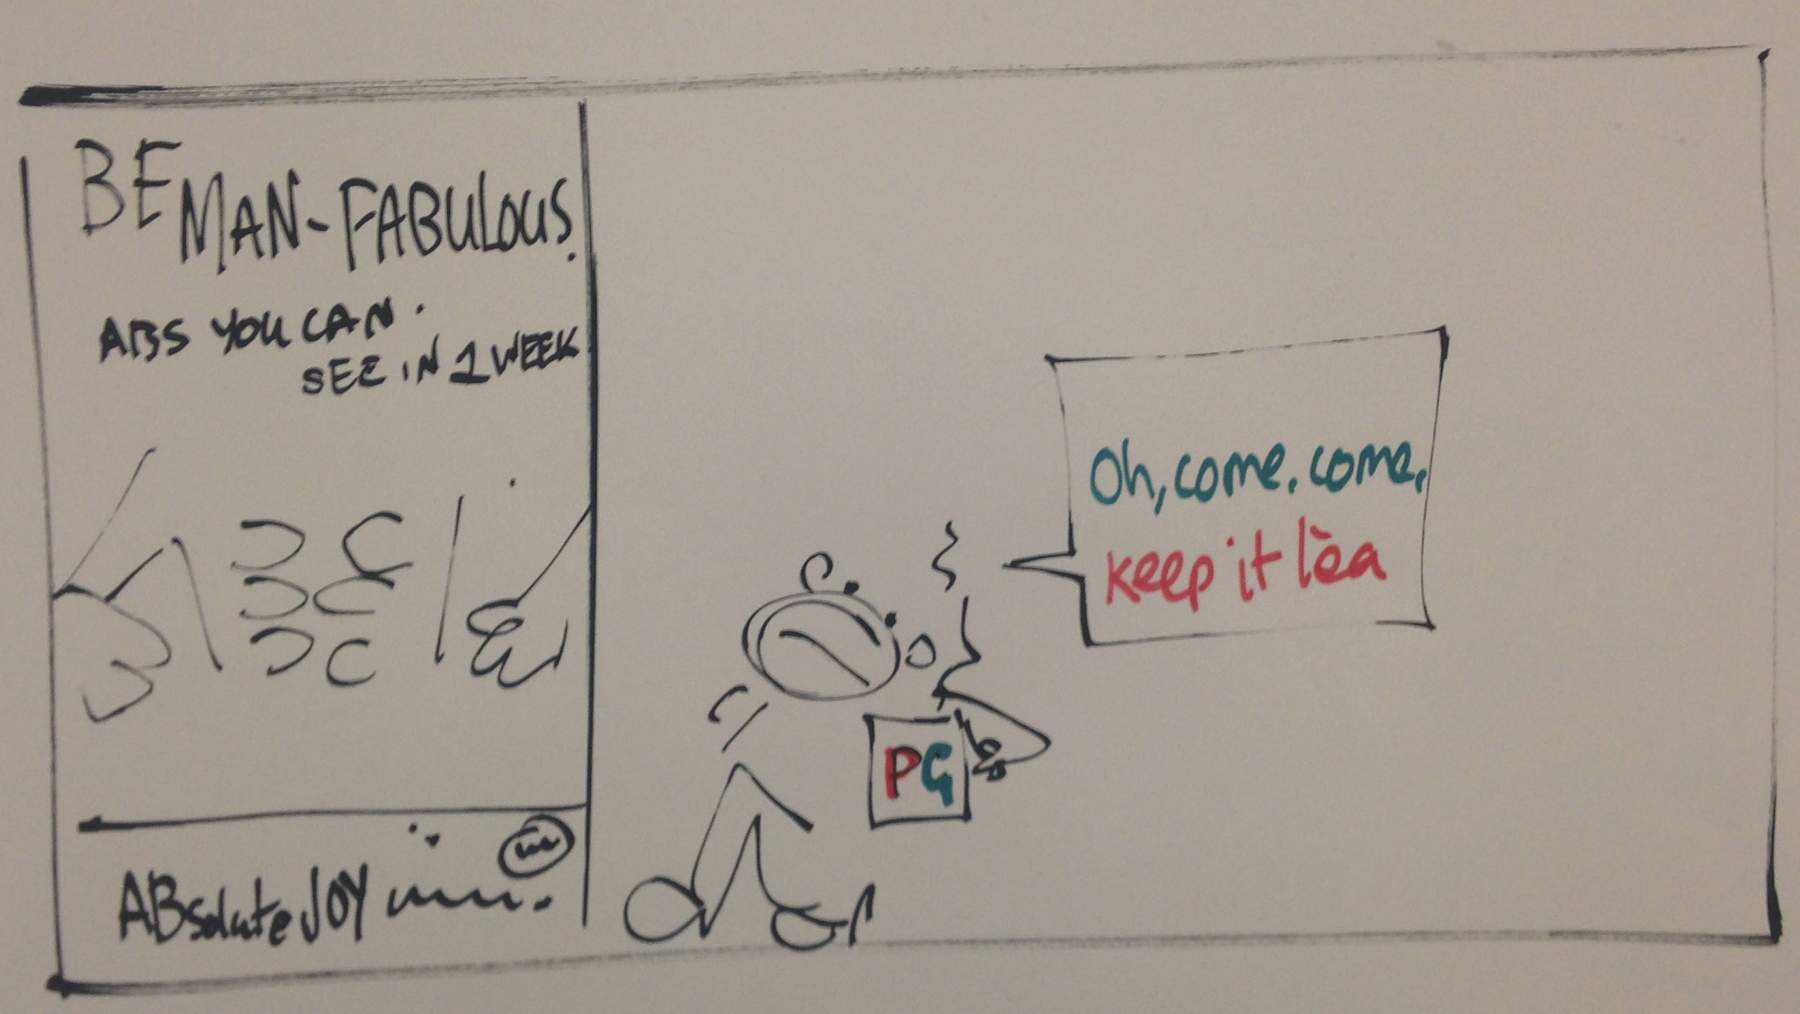 BE MAN-FABULOUS.
ABS YOU CAN
SEE IN 1 WEEK
ABsolute JOY
Oh, come, come,
keep it tea
PG